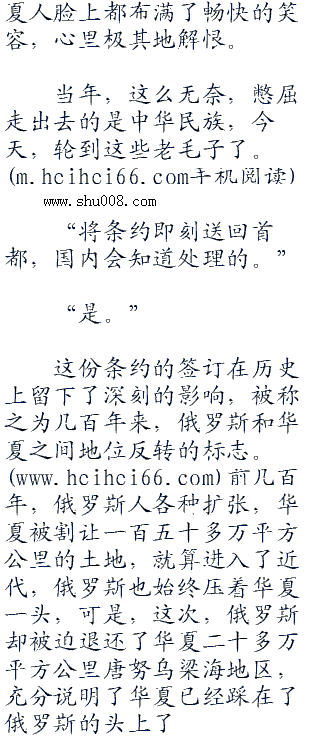 夏人脸上都布满了畅快的笑
容，心里极其地解恨。
当年，这么无奈，憋屈
走出去的是中华民族，今
天，轮到这些老毛子了。
(m.hcihci66.com手机阅读)
www.shu008.com
“将条约即刻送回首
都，国内会知道处理的。”
“是。”
这份条约的签订在历史
上留下了深刻的影响，被称
之为几百年来，俄罗斯和华
夏之间地位反转的标志。
(www.hcihci66.com)前几百
年，俄罗斯人各种扩张，华
夏被割让一百五十多万平方
公里的土地，就算进入了近
代，俄罗斯也始终压着华夏
一头，可是，这次，俄罗斯
却被迫退还了华夏二十多万
平方公里唐努乌梁海地区，
充分说明了华夏已经踩在了
俄罗斯的头上了